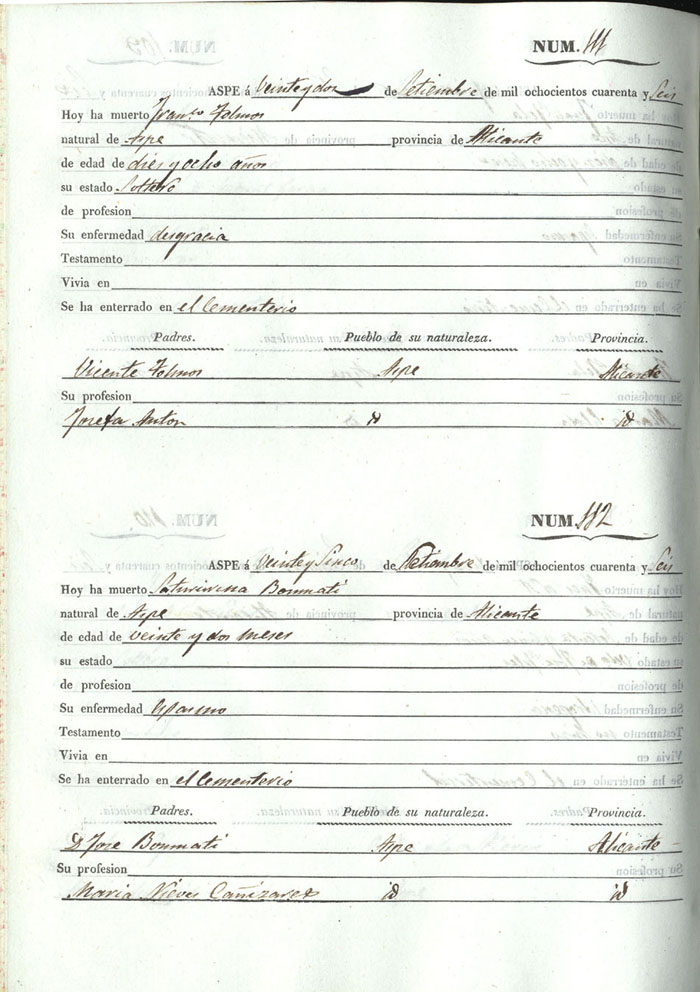 NUM. 111
ASPE á Veinte y dos de Setiembre de mil ochocientos cuarenta y Seis
Hoy ha muerto Franco Tolmos
natural de Aspe provincia de Alicante
de edad de dies y ocho años
su estado Soltero
de profesion
Su enfermedad desgracia
Testamento
Vivia en
Se ha enterrado en el Cementerio
Padres. Pueblo de su naturaleza. Provincia.
Vicente Tolmos Aspe Alicante
Su profesion
Josefa Anton id id
NUM. 112
ASPE á Veinte y Sinco de Setiembre de mil ochocientos cuarenta y Seis
Hoy ha muerto Bonmati
natural de Aspe provincia de Alicante
de edad de Veinte y dos meses
su estado
de profesion
Su enfermedad Espasmo
Testamento
Vivia en
Se ha enterrado en el Cementerio
Padres. Pueblo de su naturaleza. Provincia.
D. Jose Bonmati Aspe Alicante
Su profesion
Maria Nieves Cañizares id id